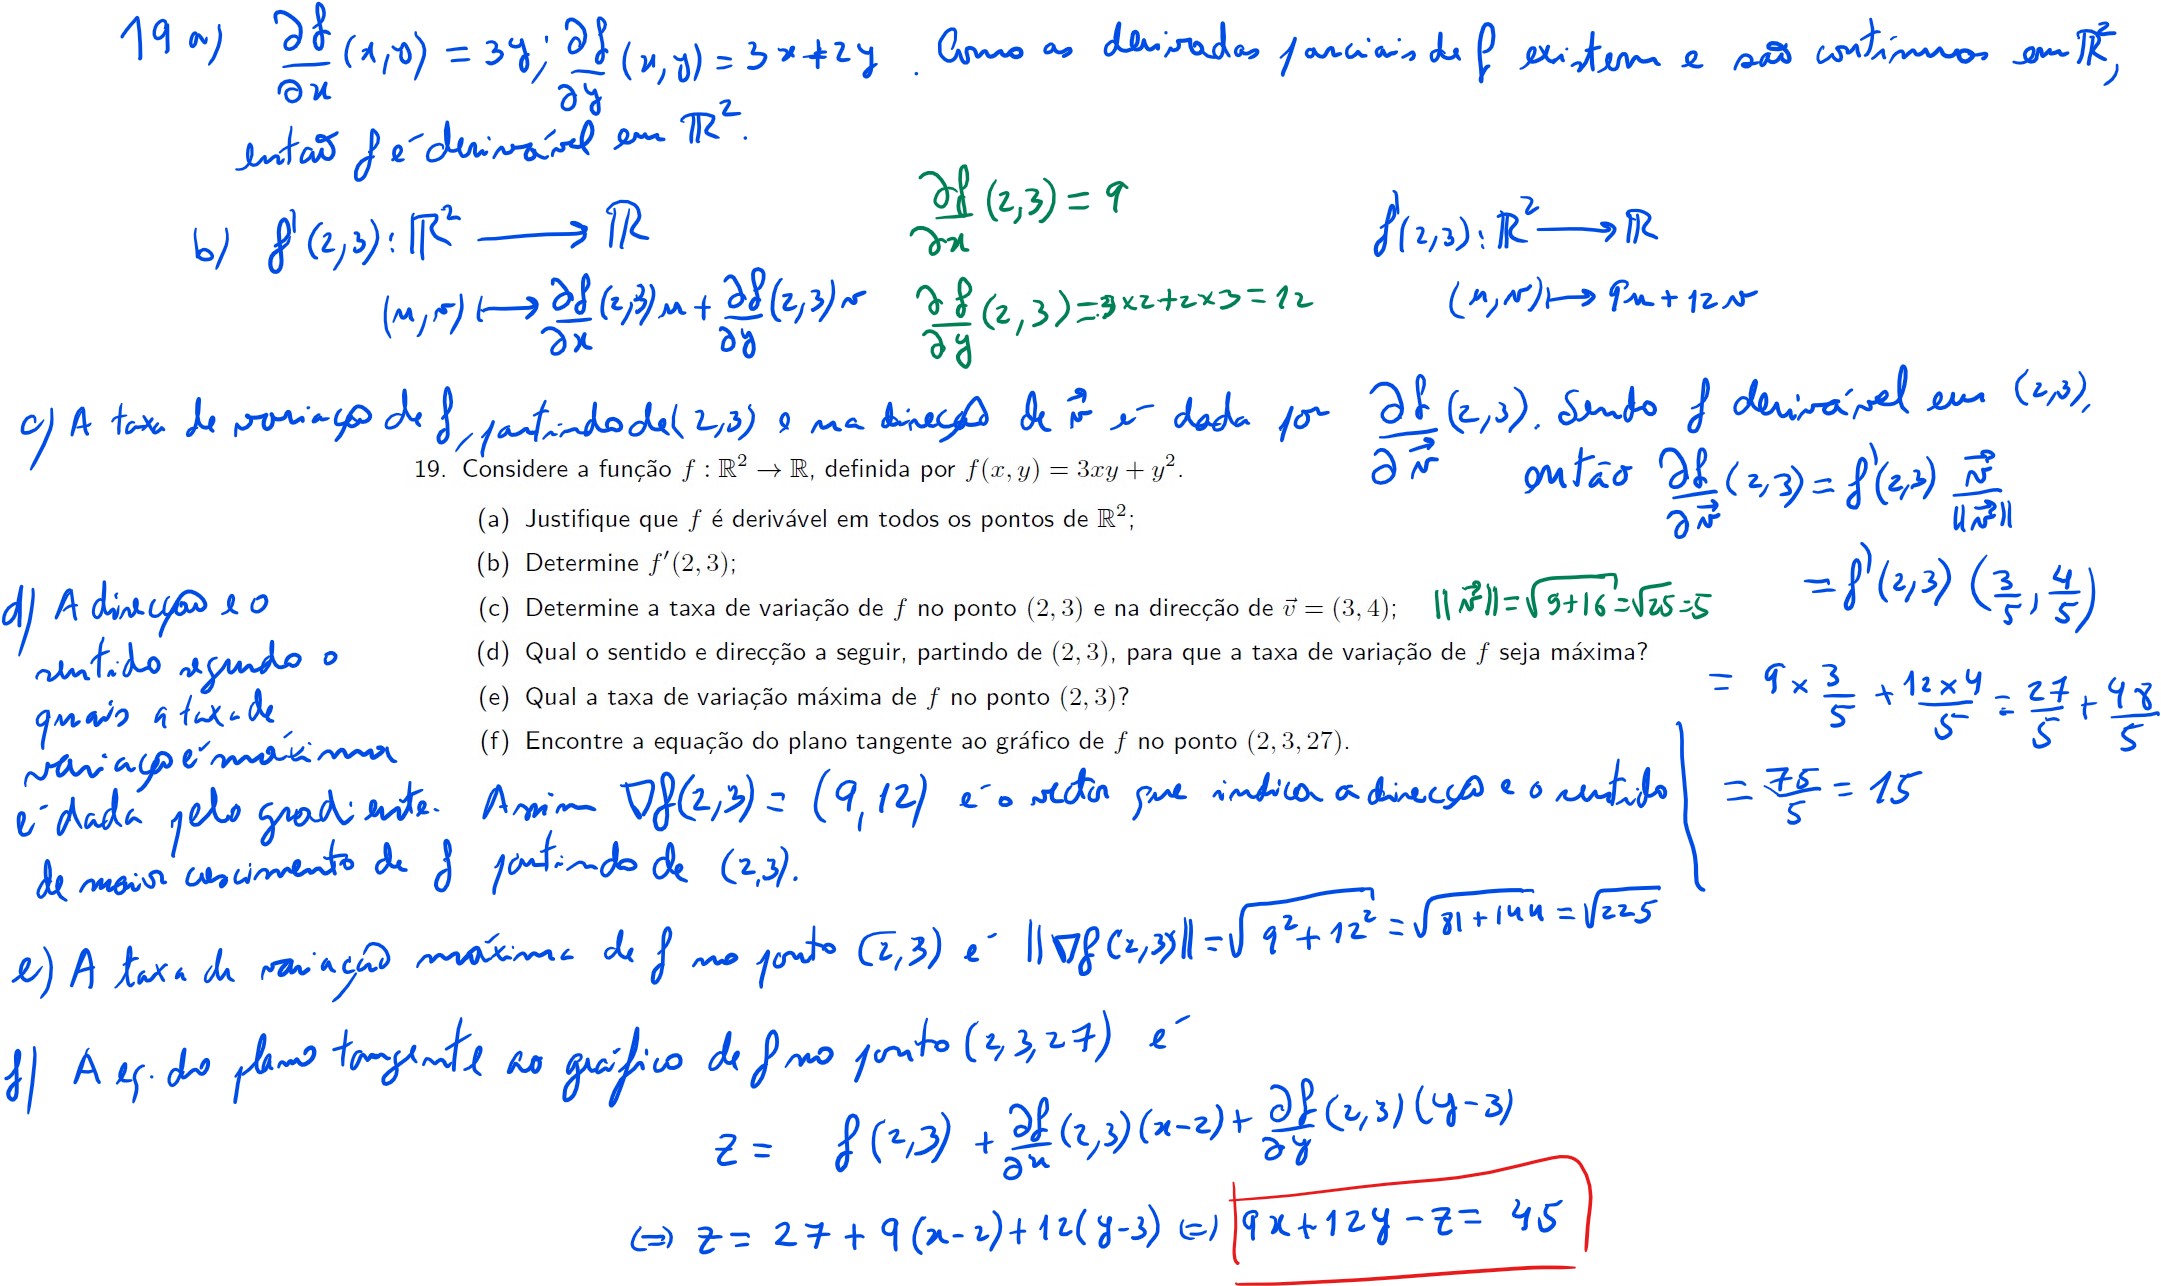 19 a) ∂f/∂x (x,y) = 3y; ∂f/∂y (x,y) = 3x+2y. Como as derivadas parciais de f existem e são contínuas em ℝ²,
então f é derivável em ℝ².
b) f'(2,3): ℝ² ⟶ ℝ
(u,v) ⟼ ∂f/∂x (2,3) u + ∂f/∂y (2,3) v
∂f/∂x (2,3) = 9
∂f/∂y (2,3) = 3×2+2×3 = 12
f'(2,3): ℝ² ⟶ ℝ
(u,v) ⟼ 9u + 12v
c) A taxa de variação de f, partindo de (2,3) e na direcção de v⃗ é dada por ∂f/∂v⃗ (2,3). Sendo f derivável em (2,3),
então ∂f/∂v⃗ (2,3) = f'(2,3) v⃗/||v⃗||
= f'(2,3) (3/5, 4/5)
= 9 × 3/5 + 12×4/5 = 27/5 + 48/5
= 75/5 = 15
19. Considere a função f : ℝ² → ℝ, definida por f(x, y) = 3xy + y².
(a) Justifique que f é derivável em todos os pontos de ℝ²;
(b) Determine f′(2, 3);
(c) Determine a taxa de variação de f no ponto (2, 3) e na direcção de v⃗ = (3, 4);
||v⃗|| = √9+16 = √25 = 5
(d) Qual o sentido e direcção a seguir, partindo de (2, 3), para que a taxa de variação de f seja máxima?
(e) Qual a taxa de variação máxima de f no ponto (2, 3)?
(f) Encontre a equação do plano tangente ao gráfico de f no ponto (2, 3, 27).
d) A direcção e o
sentido segundo o
quais a taxa de
variação é máxima
é dada pelo gradiente. Assim ∇f(2,3) = (9,12) é o vector que indica a direcção e o sentido
de maior crescimento de f partindo de (2,3).
e) A taxa de variação máxima de f no ponto (2,3) é ||∇f(2,3)|| = √9²+12² = √81+144 = √225
f) A eq. do plano tangente ao gráfico de f no ponto (2,3,27) é
z = f(2,3) + ∂f/∂x (2,3)(x-2) + ∂f/∂y (2,3)(y-3)
⇔ z = 27 + 9(x-2) + 12(y-3) ⇔ 9x+12y-z = 45